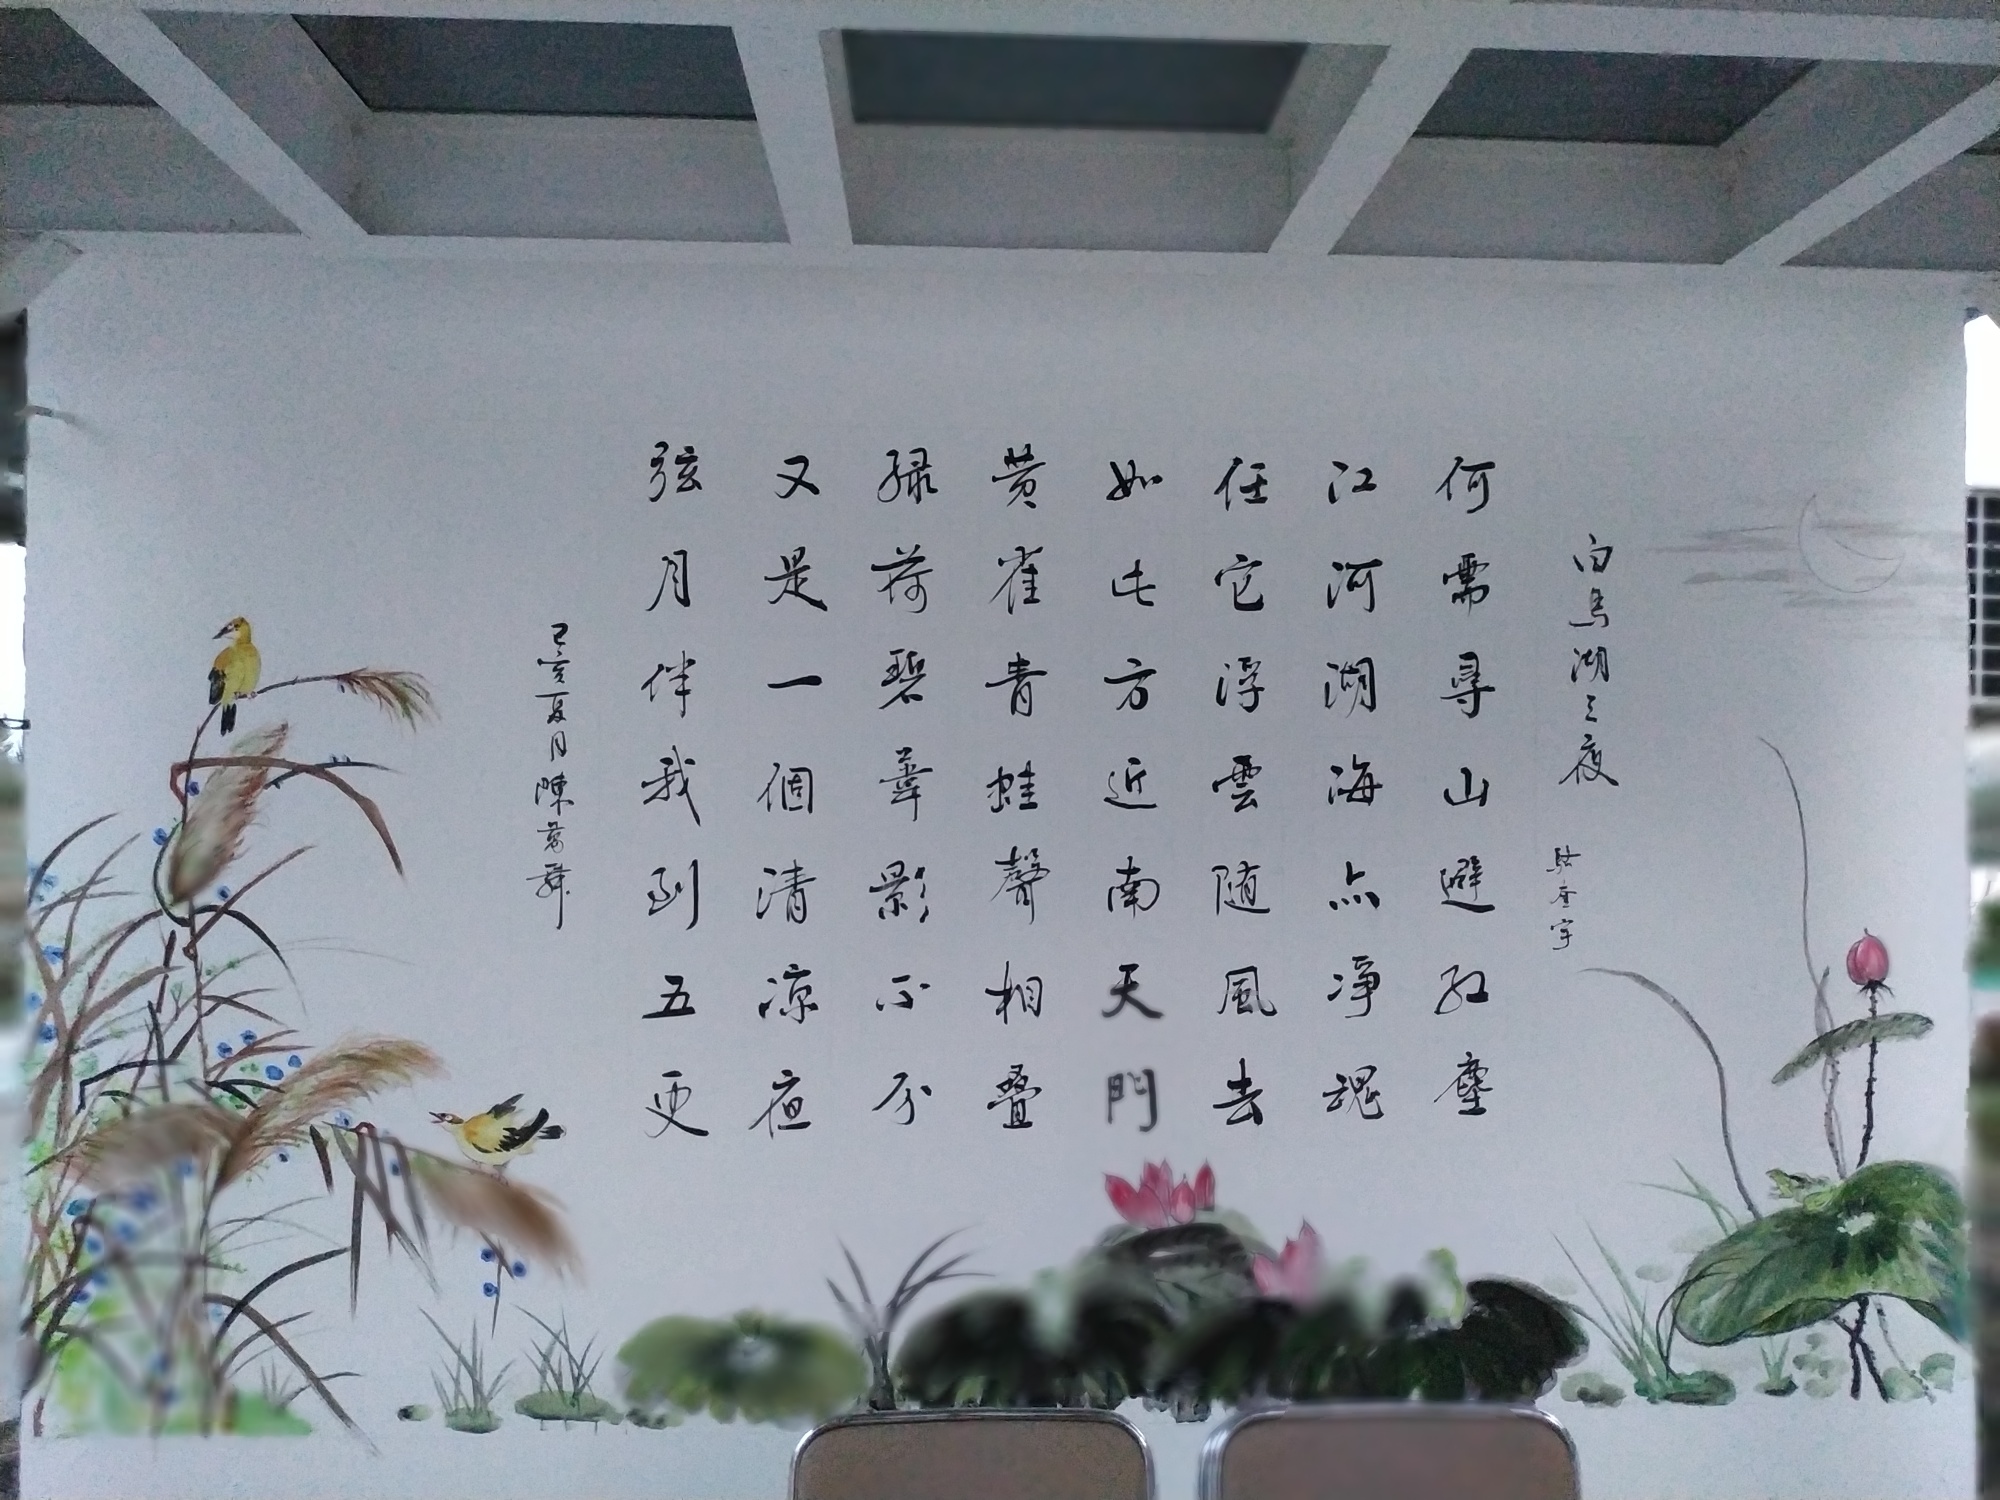 白馬湖之夜
何需尋山避紅塵
江河湖海点凈魂
任它浮雲随風去
如此方近南天門
黄雀青蛙聲相疊
緑荷碧葦影不分
又是一個清凉夜
弦月伴我到五更
己亥夏月陳